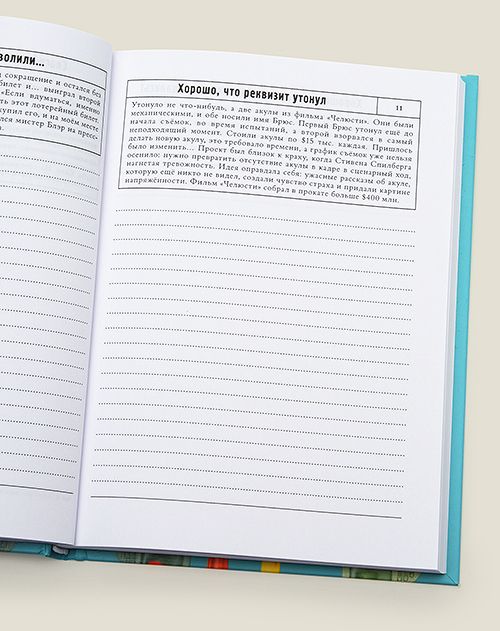 волили...
сокращение и остался без
билет и... выиграл второй
«Если вдуматься, именно
ть этот лотерейный билет.
купил его, и на моём месте
лся мистер Блэр на пресс-
Хорошо, что реквизит утонул
11
Утонуло не что-нибудь, а две акулы из фильма «Челюсти». Они были
механическими, и обе носили имя Брюс. Первый Брюс утонул ещё до
начала съёмок, во время испытаний, а второй взорвался в самый
неподходящий момент. Стоили акулы по $15 тыс. каждая. Пришлось
делать новую акулу, это требовало времени, а график съёмок уже нельзя
было изменить... Проект был близок к краху, когда Стивена Спилберга
осенило: нужно превратить отсутствие акулы в кадре в сценарный ход,
нагнетая тревожность. Идея оправдала себя: ужасные рассказы об акуле,
которую ещё никто не видел, создали чувство страха и придали картине
напряжённости. Фильм «Челюсти» собрал в прокате больше $400 млн.